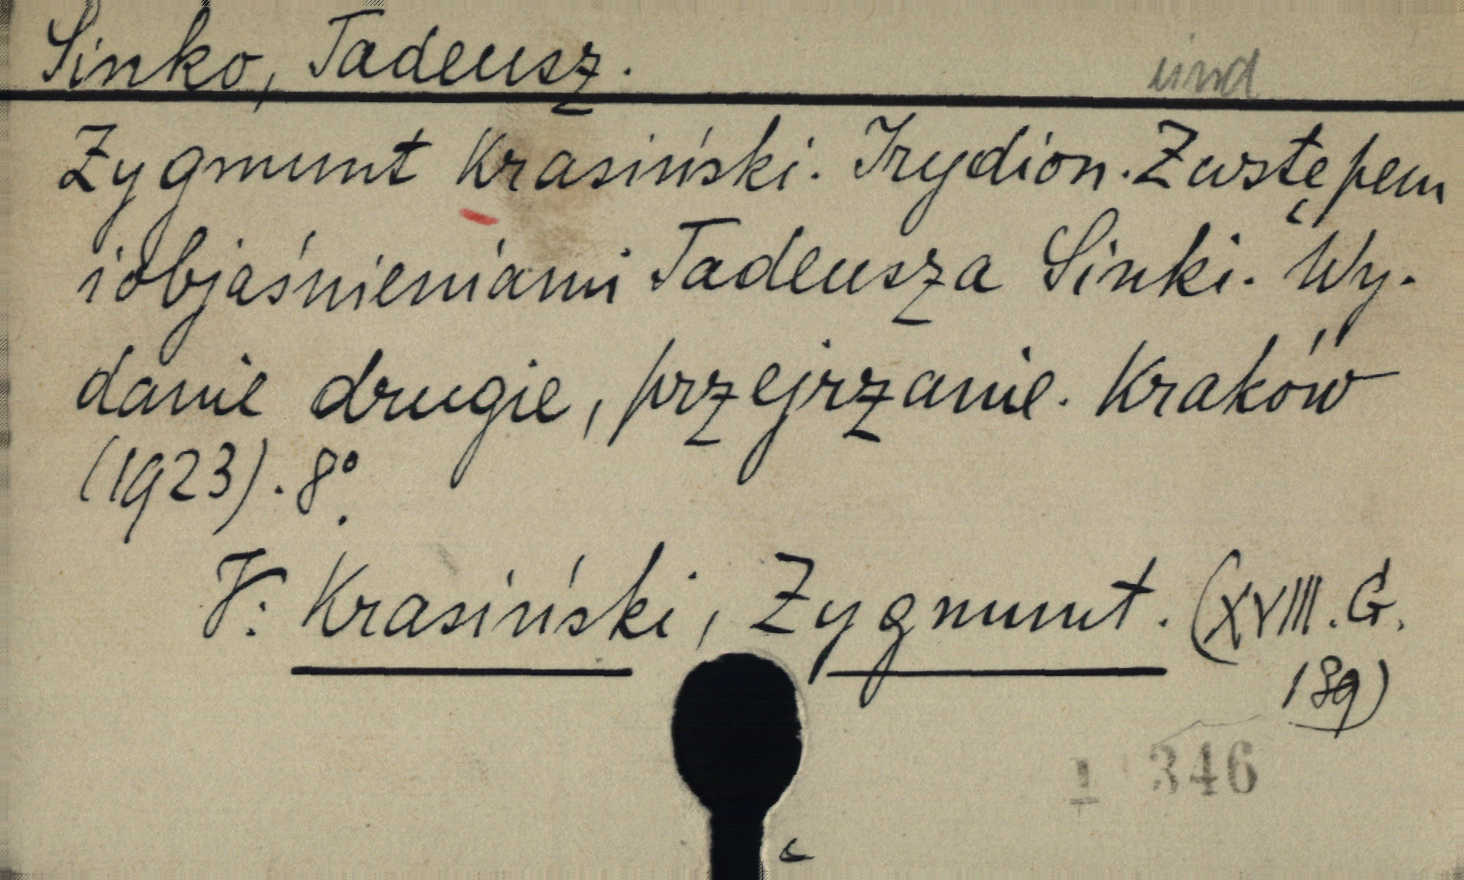 Sinko, Tadeusz.
Zygmunt Krasiński. Irydion. Z wstępem
i objaśnieniami Tadeusza Sinki. Wy-
danie drugie, przejrzanie. Kraków
(1923). 8°.
V: Krasiński, Zygmunt. (XVIII. G.
189)
346